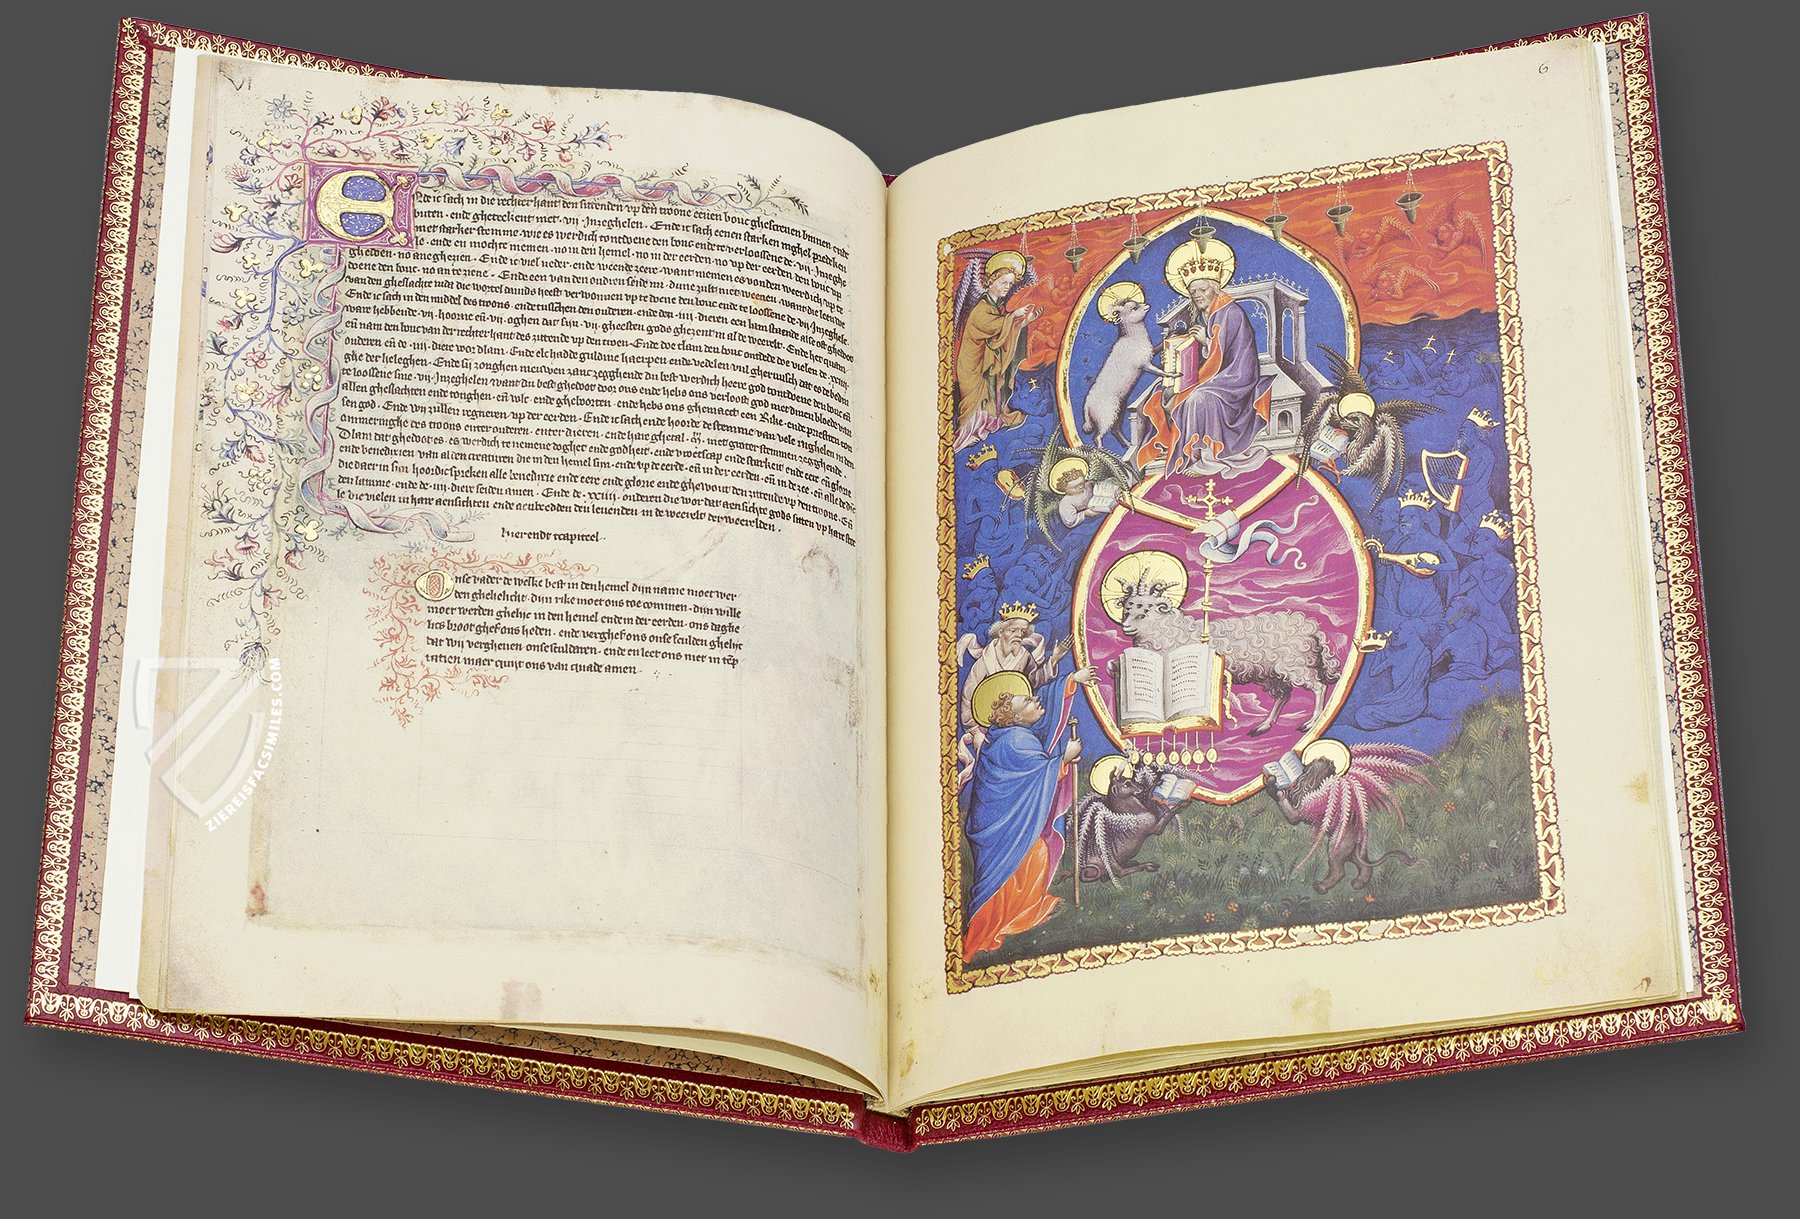 VI
6
Nde ic sach in die rechter hant den sittenden vp den troone eenen bouc ghescreuen binnen ende
buten · ende gheteekent met · vij · Jnzeghelen · Ende ic sach eenen starken inghel predeken
met starker stemme · wie es werdich tontdoene den bouc ende te verloossene de · vij · Jnzeghe
le · ende en mochte niemen · no in den hemel · no in der eerden · no vp der eerden den bouc vp
ghedoen · no · Ende ic viel neder · ende weende zeere · want niemen es vonden weerdich vp te
doene den bouc · no an te ziene · Ende een van den oudren seide mi · dune zult niet weenen · want die leeu die
van den gheslachte iuda die wortel dauids heeft verwonnen vp te doene den bouc ende te loossene de · vij · Jnzeghele ·
Ende ic sach in den middel des troons · ende tusschen den ouderen · ende den · iiij · dieren een lam staende alse oft ghedoot
ware hebbende · vij · hoorne en̄ · vij · oghen dat sijn · vij · gheesten gods ghezent in al de weerelt · Ende het quam
en̄ nam den bouc van der rechter hant des zittende vp den troen · Ende doe dlam den bouc ontdede doe vielen de · xxiiij ·
ouderen en̄ de · iiij · diere vor dlam · Ende elc hadde guldine haerpen ende vedelen vul gherueschs dat es de bedin
ghe der heleghen · Ende sij zonghen nieuwen zanc zegghende du best werdich heere god tontdoene den bouc en̄
te loossene sine · vij · Jnzeghelen want du best ghedoot door ons ende hebs ons verloost god met dinen bloede van
allen gheslachten ende tonghen · en̄ volc · ende gheboorten · ende hebs ons ghemaect een Rike · ende priestren con
sen god · Ende wij zullen regneren vp der eerden · Ende ic sach ende hoorde de stemme van vele inghelen in den
ommeringhe des troons ende ouderen · ende dieren · ende hare ghetal · met groter stemmen zegghende ·
Dlam dat ghedoot es · es werdich te nemene doghet ende godheit · ende vroetscap ende starkeit ende eere en̄ glorie
ende benedixien · van al den creaturen die in den hemel sijn · ende vp de eerde · en̄ in der eerden · en̄ in de zee · en̄ alle de die
die daer in sijn hoordic spreken alle benedixie ende eere ende glorie ende ghewout den zittende vp den troone · En̄
den lamme · ende de · iiij · diere seiden amen · Ende de · xxiiij · ouderen die vor dat aensichte gods saten vp hare sete
le die vielen in hare aensichten ende aenbeedden den leuenden in de weerelt der weerelden ·
hier endt tcapiteel ··
Onse vader de welke best in den hemel dijn name moet wer
den ghehelicht · dijn rike moet ons toe commen · dijn wille
moet werden ghelijc in den hemel ende in der eerden · ons daghe
licx broot ghef ons heden · ende vergheft ons onse sculden ghelijc
dat wij vergheuen onse sculdaren · ende en leet ons niet in tēp
tatien maer quijt ons van quade amen ·
ZIEREISFACSIMILES.COM